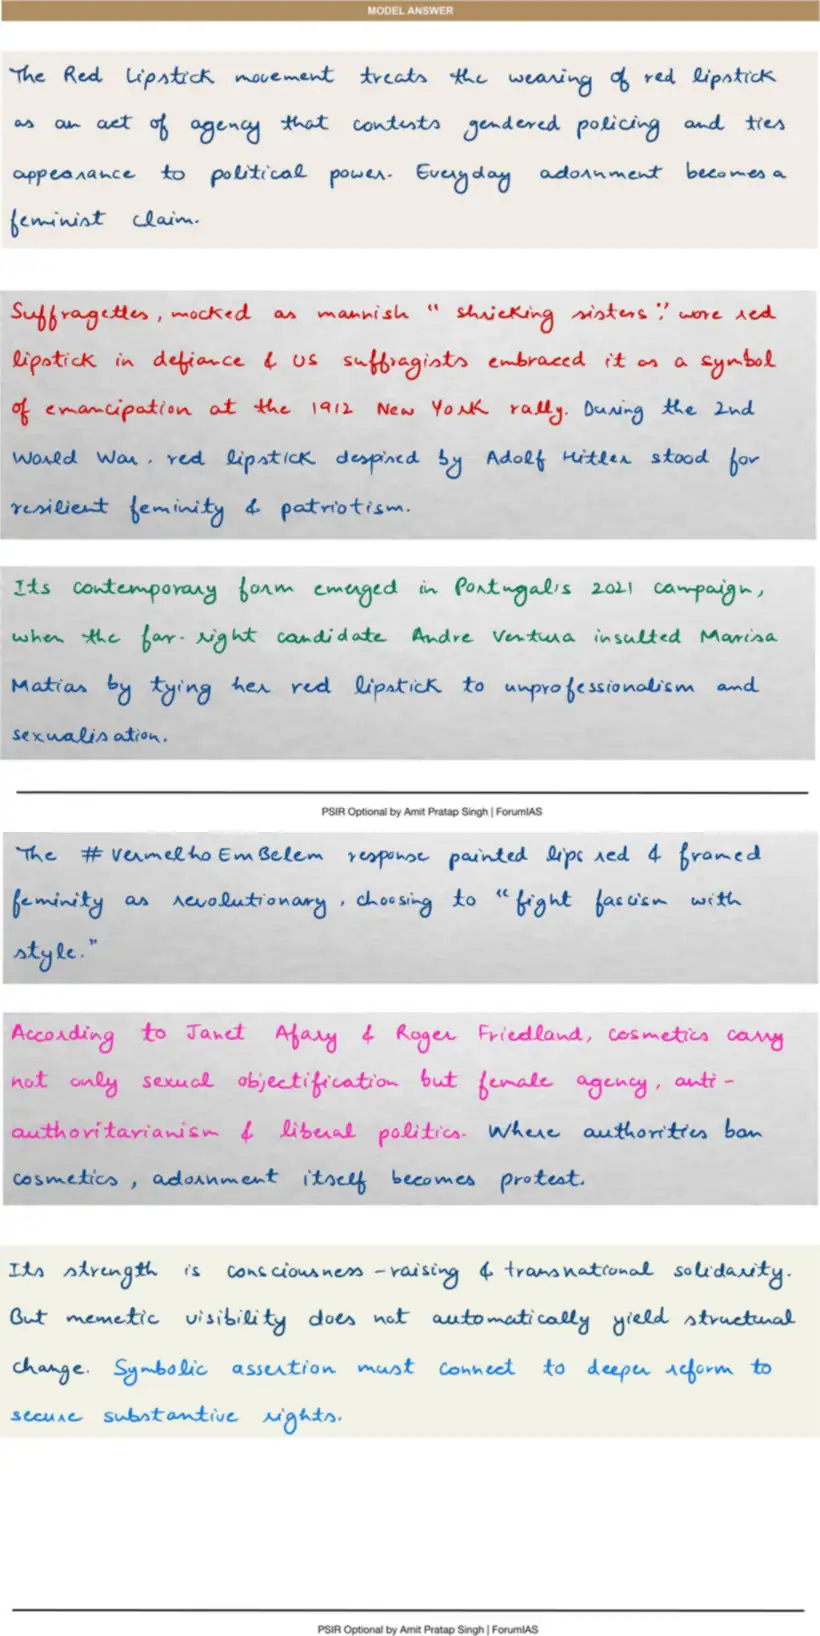 MODEL ANSWER
The Red Lipstick movement treats the wearing of red lipstick
as an act of agency that contests gendered policing and ties
appearance to political power. Everyday adornment becomes a
feminist claim.
Suffragettes, mocked as mannish "shrieking sisters", wore red
lipstick in defiance & US suffragists embraced it as a symbol
of emancipation at the 1912 New York rally. During the 2nd
World War, red lipstick despised by Adolf Hitler stood for
resilient feminity & patriotism.
Its contemporary form emerged in Portugal's 2021 campaign,
when the far-right candidate Andre Ventura insulted Marisa
Matias by tying her red lipstick to unprofessionalism and
sexualisation.
PSIR Optional by Amit Pratap Singh | ForumIAS
The #VermelhoEmBelem response painted lips red & framed
feminity as revolutionary, choosing to "fight fascism with
style."
According to Janet Afary & Roger Friedland, cosmetics carry
not only sexual objectification but female agency, anti-
authoritarianism & liberal politics. Where authorities ban
cosmetics, adornment itself becomes protest.
Its strength is consciousness-raising & transnational solidarity.
But memetic visibility does not automatically yield structural
change. Symbolic assertion must connect to deeper reform to
secure substantive rights.
PSIR Optional by Amit Pratap Singh | ForumIAS